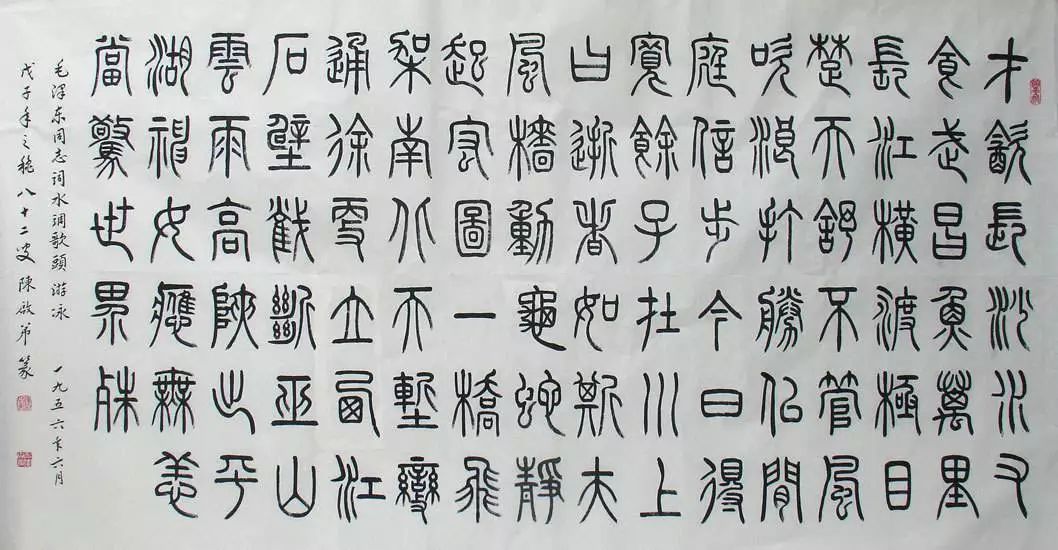 才飲長沙水又
食武昌魚萬里
長江橫渡極目
楚天舒不管風
吹浪打勝似閒
庭信步今日得
寬餘子在川上
曰逝者如斯夫
風檣動龜蛇靜
起宏圖一橋飛
架南北天塹變
通途更立西江
石壁截斷巫山
雲雨高峽出平
湖神女應無恙
當驚世界殊
毛澤东同志詞水調歌頭游泳 一九五六年六月
戊子年之秋八十二叟陳啟篆